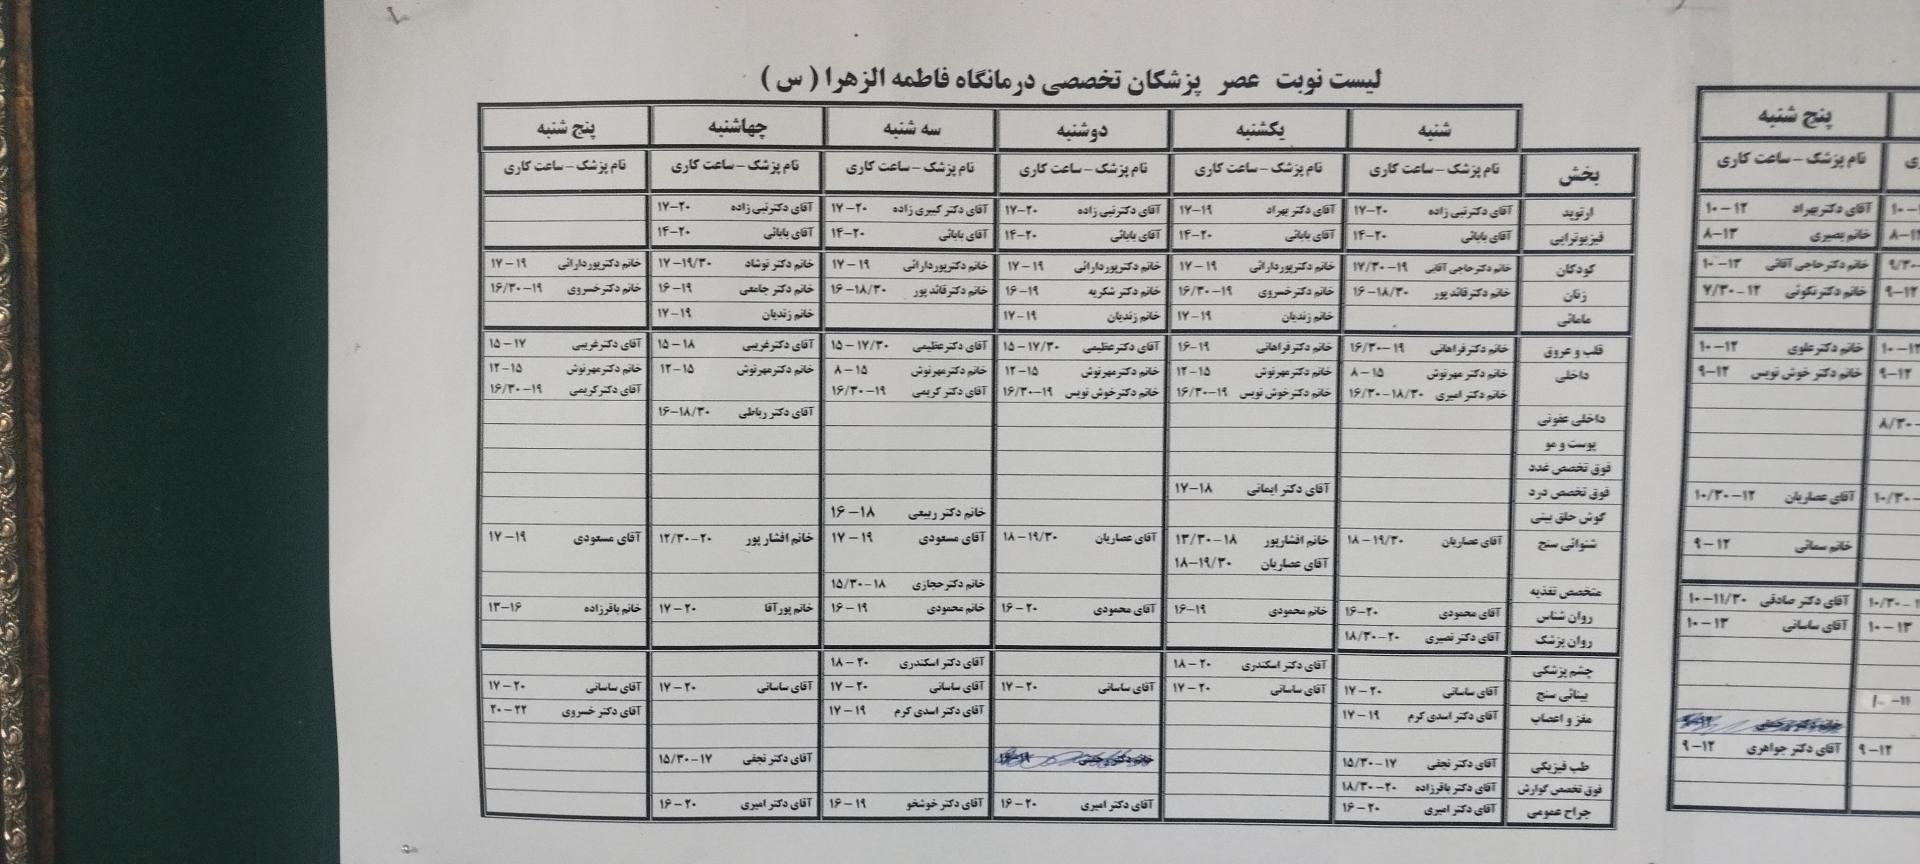 لیست نوبت عصر پزشکان تخصصی درمانگاه فاطمه الزهرا ( س )
شنبه یکشنبه دوشنبه سه شنبه چهاشنبه پنج شنبه
بخش نام پزشک – ساعت کاری نام پزشک – ساعت کاری نام پزشک – ساعت کاری نام پزشک – ساعت کاری نام پزشک – ساعت کاری نام پزشک – ساعت کاری
ارتوپد آقای دکترنبی زاده ۱۷-۲۰ آقای دکتر بهراد ۱۷-۱۹ آقای دکترنبی زاده ۱۷-۲۰ آقای دکتر کبیری زاده ۱۷-۲۰ آقای دکترنبی زاده ۱۷-۲۰
فیزیوتراپی آقای بابائی ۱۴-۲۰ آقای بابائی ۱۴-۲۰ آقای بابائی ۱۴-۲۰ آقای بابائی ۱۴-۲۰ آقای بابائی ۱۴-۲۰
کودکان خانم دکترحاجی آقایی ۱۷/۳۰-۱۹ خانم دکترپوردارائی ۱۷-۱۹ خانم دکترپوردارائی ۱۷-۱۹ خانم دکترپوردارائی ۱۷-۱۹ خانم دکتر نوشاد ۱۷-۱۹/۳۰ خانم دکترپوردارائی ۱۷-۱۹
زنان خانم دکترقائد پور ۱۶-۱۸/۳۰ خانم دکترخسروی ۱۶/۳۰-۱۹ خانم دکتر شکریه ۱۶-۱۹ خانم دکترقائد پور ۱۶-۱۸/۳۰ خانم دکتر جامعی ۱۶-۱۹ خانم دکترخسروی ۱۶/۳۰-۱۹
مامائی خانم زندیان ۱۷-۱۹ خانم زندیان ۱۷-۱۹ خانم زندیان ۱۷-۱۹
قلب و عروق خانم دکترفراهانی ۱۶/۳۰-۱۹ خانم دکترفراهانی ۱۶-۱۹ آقای دکترعظیمی ۱۵-۱۷/۳۰ آقای دکترعظیمی ۱۵-۱۷/۳۰ آقای دکترغریبی ۱۵-۱۸ آقای دکترغریبی ۱۵-۱۷
داخلی خانم دکتر مهرنوش ۸-۱۵ خانم دکترمهرنوش ۱۲-۱۵ خانم دکترمهرنوش ۱۲-۱۵ خانم دکترمهرنوش ۸-۱۵ خانم دکترمهرنوش ۱۲-۱۵ خانم دکترمهرنوش ۱۲-۱۵
خانم دکتر امیری ۱۶/۳۰-۱۸/۳۰ خانم دکترخوش نویس ۱۶/۳۰-۱۹ خانم دکترخوش نویس ۱۶/۳۰-۱۹ آقای دکتر کریمی ۱۶/۳۰-۱۹ آقای دکترکریمی ۱۶/۳۰-۱۹
داخلی عفونی آقای دکتر رباطی ۱۶-۱۸/۳۰
پوست و مو
فوق تخصص غدد
فوق تخصص درد آقای دکتر ایمانی ۱۷-۱۸
گوش حلق بینی خانم دکتر ربیعی ۱۶-۱۸
شنوائی سنج آقای عصاریان ۱۸-۱۹/۳۰ خانم افشارپور ۱۳/۳۰-۱۸ آقای عصاریان ۱۸-۱۹/۳۰ آقای مسعودی ۱۷-۱۹ خانم افشار پور ۱۲/۳۰-۲۰ آقای مسعودی ۱۷-۱۹
آقای عصاریان ۱۸-۱۹/۳۰
متخصص تغذیه خانم دکترحجازی ۱۵/۳۰-۱۸
روان شناس آقای محمودی ۱۶-۲۰ خانم محمودی ۱۶-۱۹ آقای محمودی ۱۶-۲۰ خانم محمودی ۱۶-۱۹ خانم پورآقا ۱۷-۲۰ خانم باقرزاده ۱۳-۱۶
روان پزشک آقای دکتر نصیری ۱۸/۳۰-۲۰
چشم پزشکی آقای دکتر اسکندری ۱۸-۲۰ آقای دکتر اسکندری ۱۸-۲۰
بینائی سنج آقای ساسانی ۱۷-۲۰ آقای ساسانی ۱۷-۲۰ آقای ساسانی ۱۷-۲۰ آقای ساسانی ۱۷-۲۰ آقای ساسانی ۱۷-۲۰ آقای ساسانی ۱۷-۲۰
مغز و اعصاب آقای دکتر اسدی کرم ۱۷-۱۹ آقای دکتر اسدی کرم ۱۷-۱۹ آقای دکتر خسروی ۲۰-۲۲
طب فیزیکی آقای دکتر نجفی ۱۵/۳۰-۱۷ آقای دکتر نجفی ۱۵/۳۰-۱۷
فوق تخصص گوارش آقای دکتر باقرزاده ۱۸/۳۰-۲۰
جراح عمومی آقای دکتر امیری ۱۶-۲۰ آقای دکتر امیری ۱۶-۲۰ آقای دکتر خوشخو ۱۶-۱۹ آقای دکتر امیری ۱۶-۲۰
پنج شنبه
نام پزشک – ساعت کاری
آقای دکتر بهراد ۱۰-۱۲
خانم بصیری ۸-۱۳
خانم دکترحاجی آقائی ۱۰-۱۳
خانم دکتر نکوئی ۷/۳۰-۱۲
خانم دکترعلوی ۱۰-۱۲
خانم دکتر خوش نویس ۹-۱۲
آقای عصاریان ۱۰/۳۰-۱۲
خانم سمائی ۹-۱۲
آقای دکتر صادقی ۱۰-۱۱/۳۰
آقای ساسانی ۱۰-۱۳
آقای دکتر جواهری ۹-۱۲